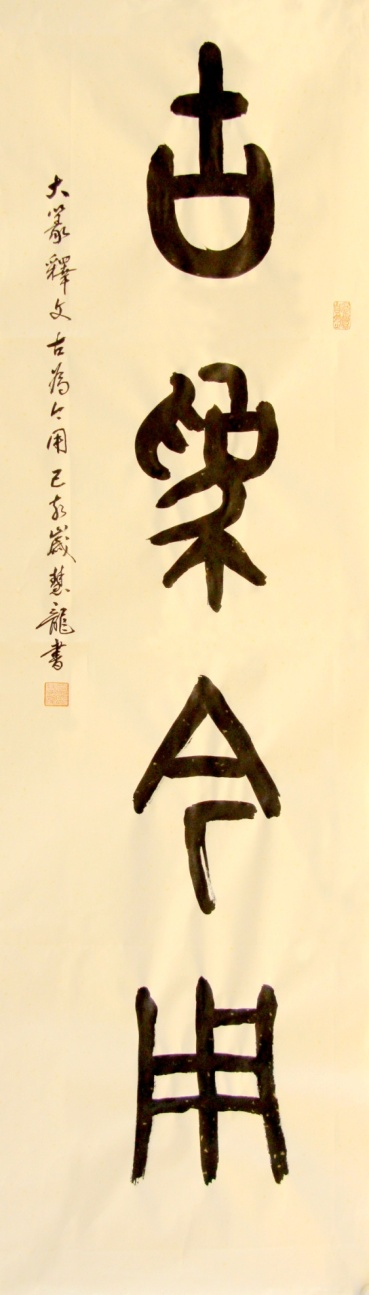 古為今用
大篆釋文古為今用己亥歲慧龍書